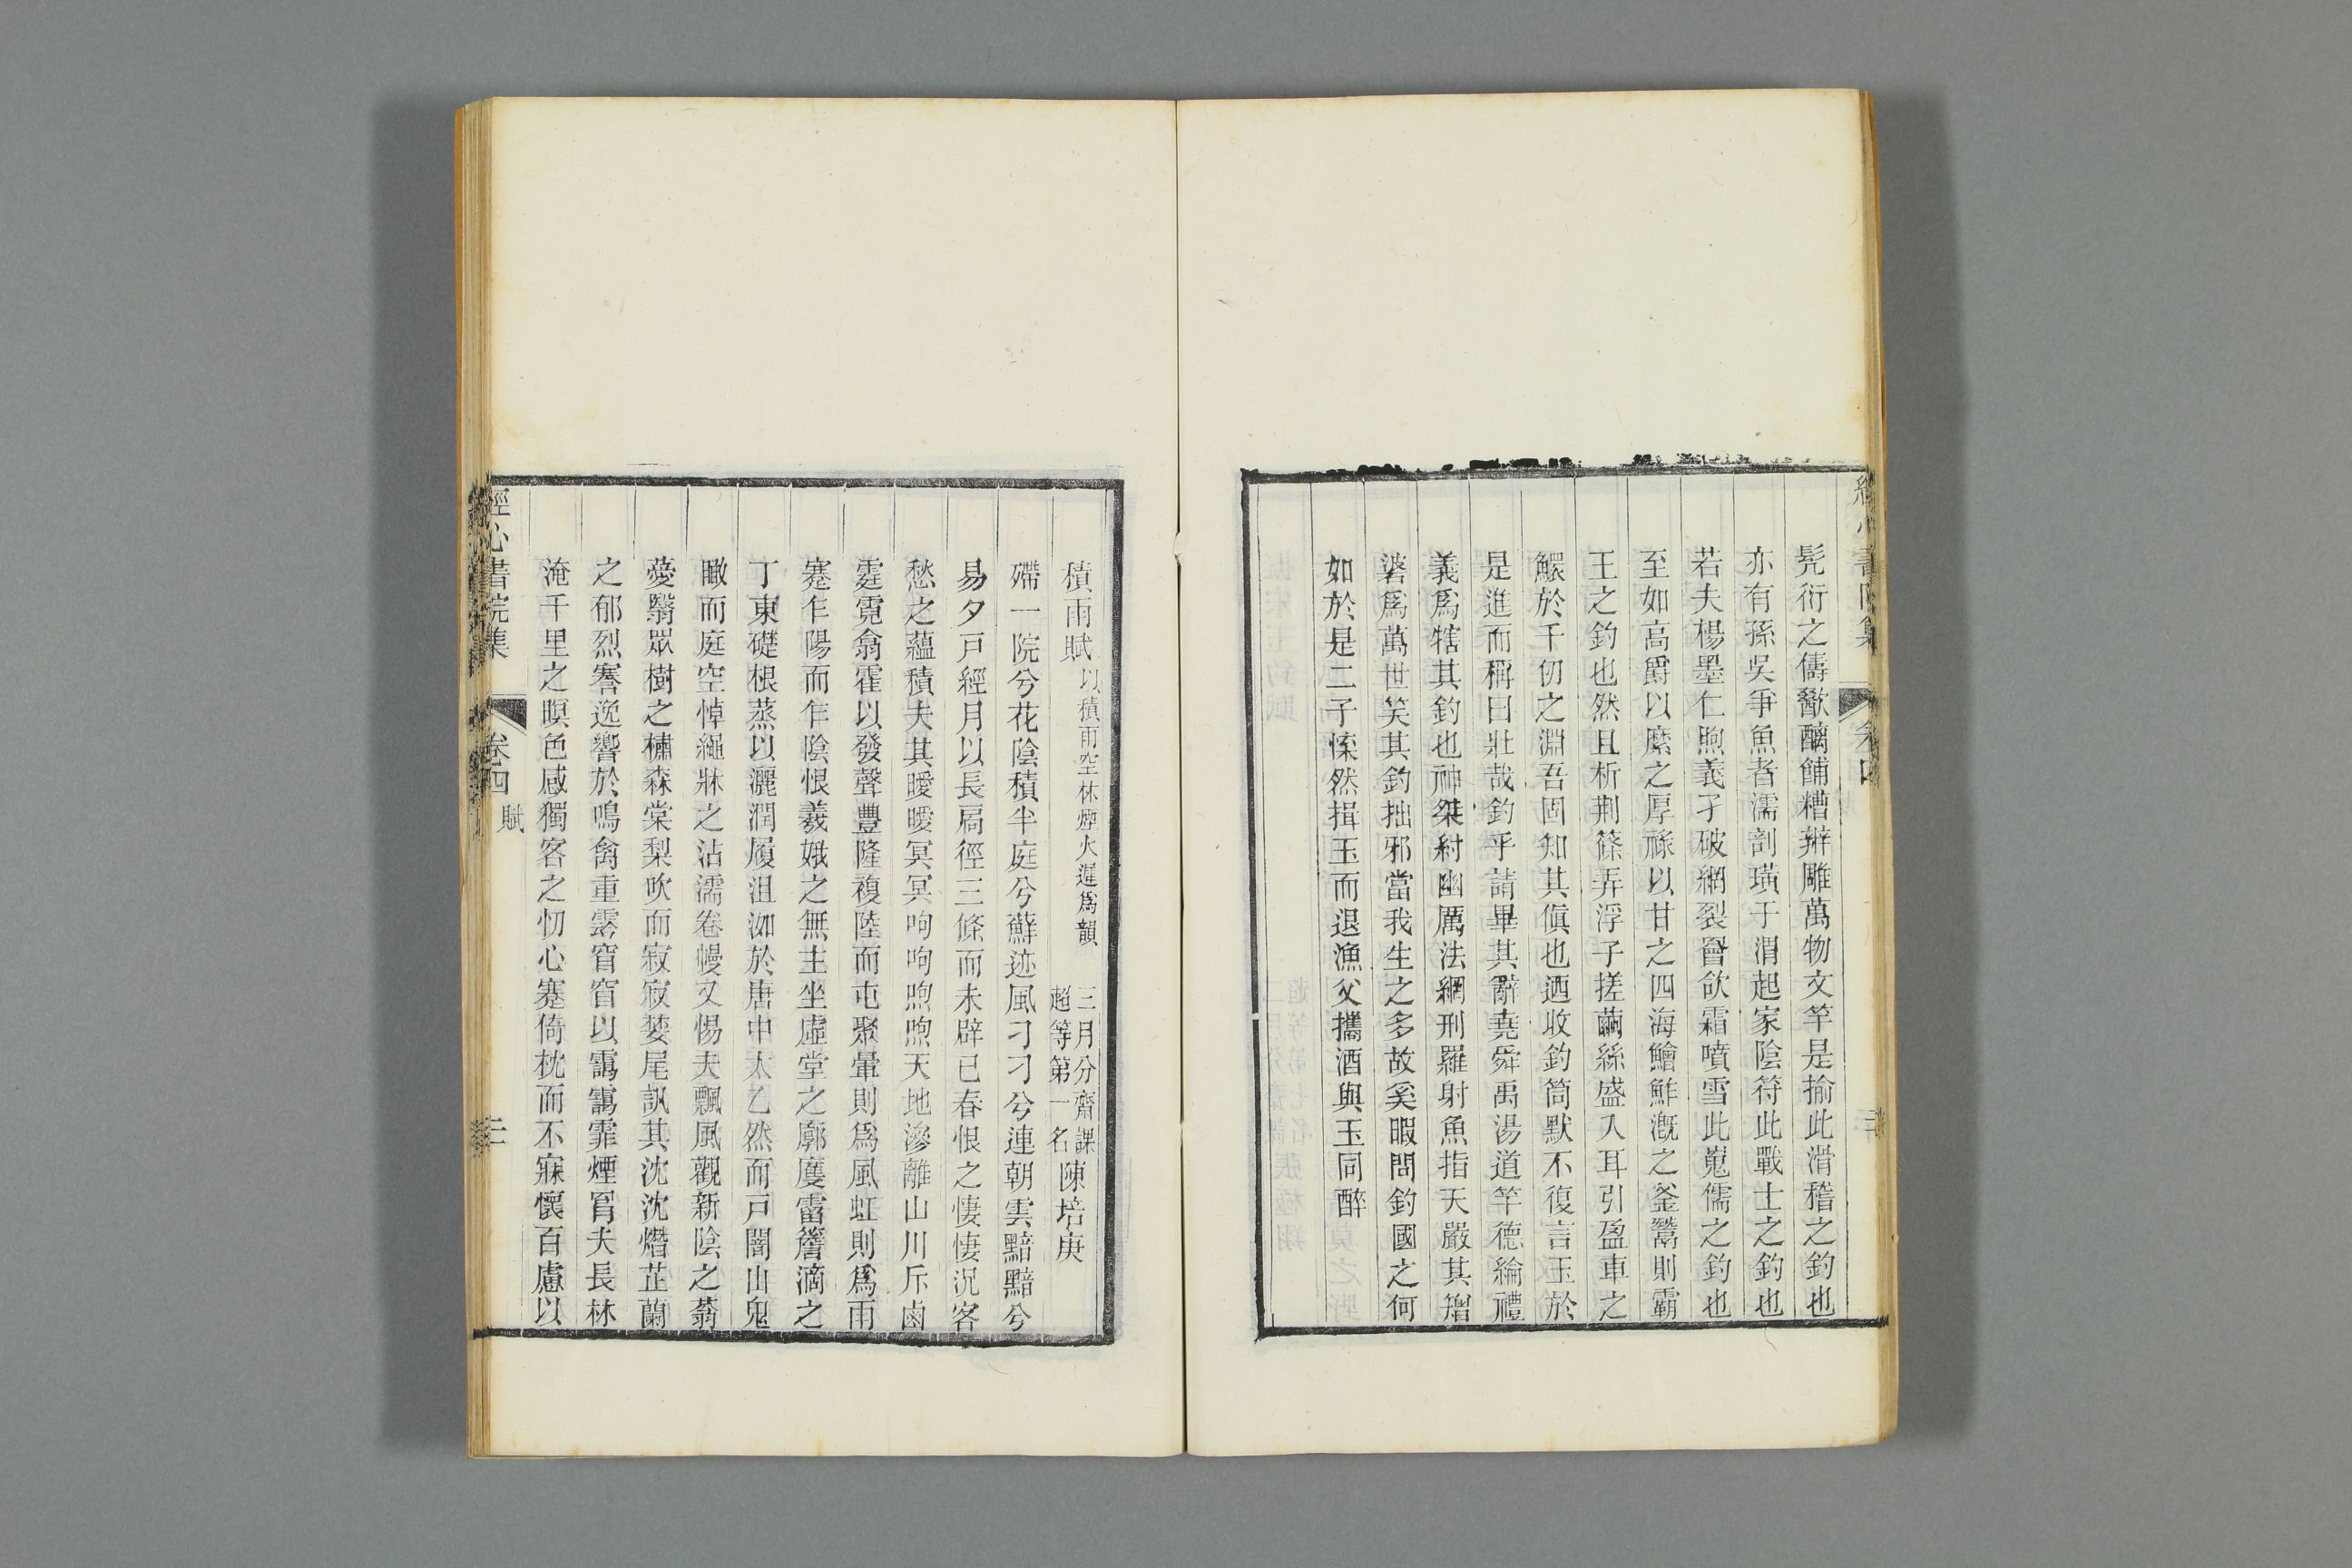 經心書院集
卷四
髠衍之儔歠醨餔糟辨雕萬物文竿是揄此滑稽之釣也
亦有孫吳爭魚者濡剖璜于渭起家陰符此戰士之釣也
若夫楊墨仁煦義孑破網裂罾欲霜噴雪此嵬儒之釣也
至如高爵以縻之厚祿以甘之四海鱠鮮漑之釜鬵則霸
王之釣也然且析荆篠弄浮子搓繭絲盛入耳引盈車之
鰥於千仞之淵吾固知其傎也迺收釣筒默不復言玉於
是進而稱曰壯哉釣乎請畢其辭堯舜禹湯道竿德綸禮
義爲犗其釣也神桀紂幽厲法網刑羅射魚指天嚴其矰
磻爲萬世笑其釣拙邪當我生之多故奚暇問釣國之何
如於是二子愫然揖玉而退漁父攜酒與玉同醉
積雨賦 以積雨空林煙火遲爲韻 三月分齋課超等第一名 陳培庚
殢一院兮花陰積半庭兮蘚迹風刁刁兮連朝雲黯黯兮
易夕戸經月以長扃徑三條而未辟已春恨之悽悽況客
愁之蘊積夫其曖曖冥冥呴呴煦煦天地滲離山川斥鹵
霆霓翕霍以發聲豐隆複陸而屯聚暈則爲風虹則爲雨
蹇乍陽而乍陰恨羲娥之無主坐虛堂之廓廔霤簷滴之
丁東礎根蒸以灑潤履沮洳於唐中太乙然而戸闇山鬼
瞰而庭空悼繩牀之沾濡卷幔又惕夫飄風觀新陰之蓊
薆翳眾樹之橚森棠梨吹而寂寂婪尾訊其沈沈熸芷蘭
之郁烈謇逸響於鳴禽重霧窅窅以靄靄霏煙罥夫長林
淹千里之暝色感獨客之忉心蹇倚枕而不寐懷百慮以
經心書院集
卷四 賦
三